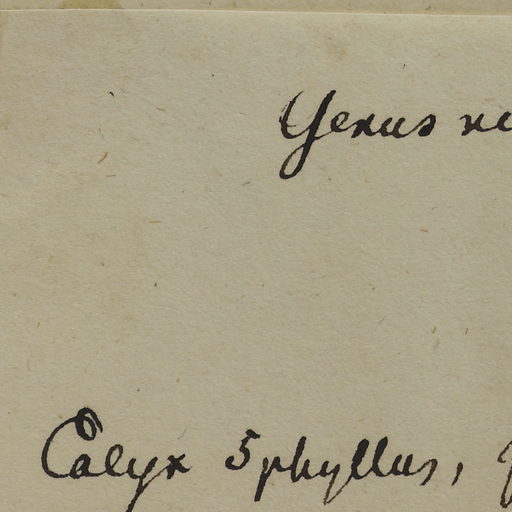 Genus
Calyx 5phyllus,